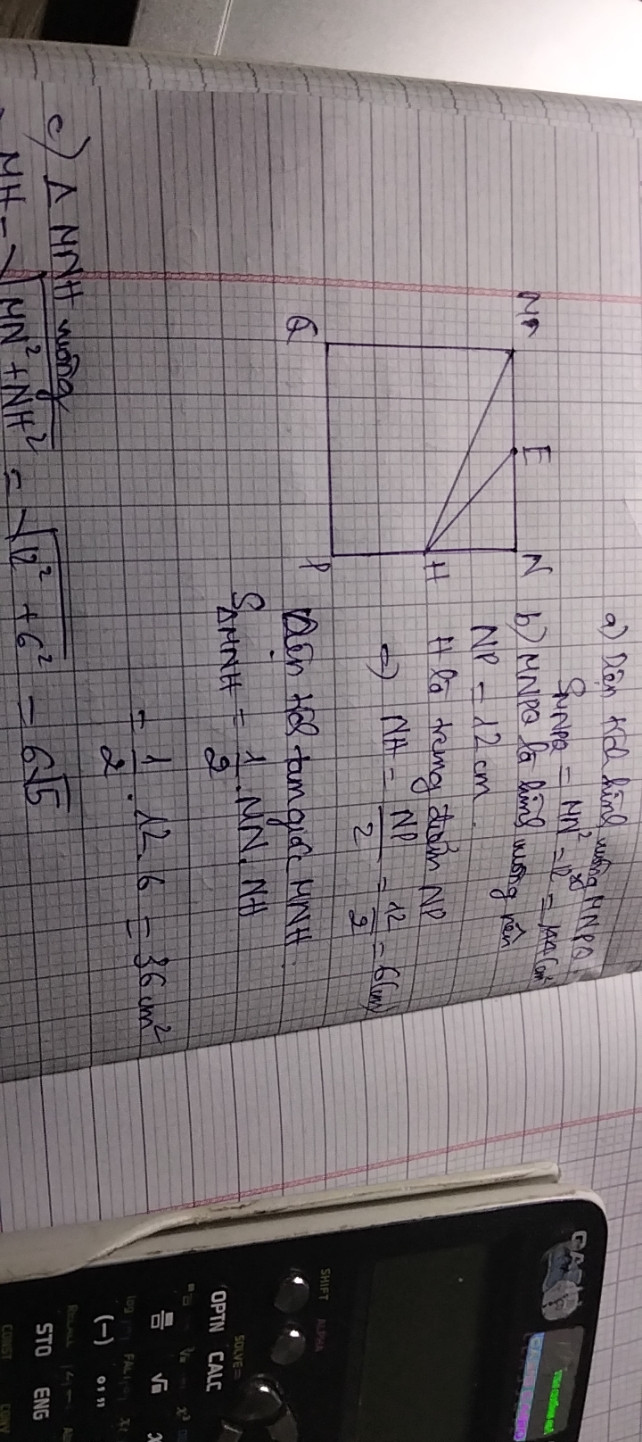 a) Diện tích hình vuông MNPQ.
S_MNPQ = MN² = 12² = 144 (cm²)
b) MNPQ là hình vuông nên
NP = 12 cm.
H là trung điểm NP
=> NH = NP/2 = 12/2 = 6 (cm)
Diện tích tam giác MNH.
S_ΔMNH = 1/2 . MN. NH
= 1/2 . 12. 6 = 36 cm²
M E N
H
Q P
c) Δ MNH vuông
MH = √(MN² + NH²) = √(12² + 6²) = 6√5
CASIO
SHIFT ALPHA
OPTN CALC
SOLVE =
(−)
STO ENG
CONST